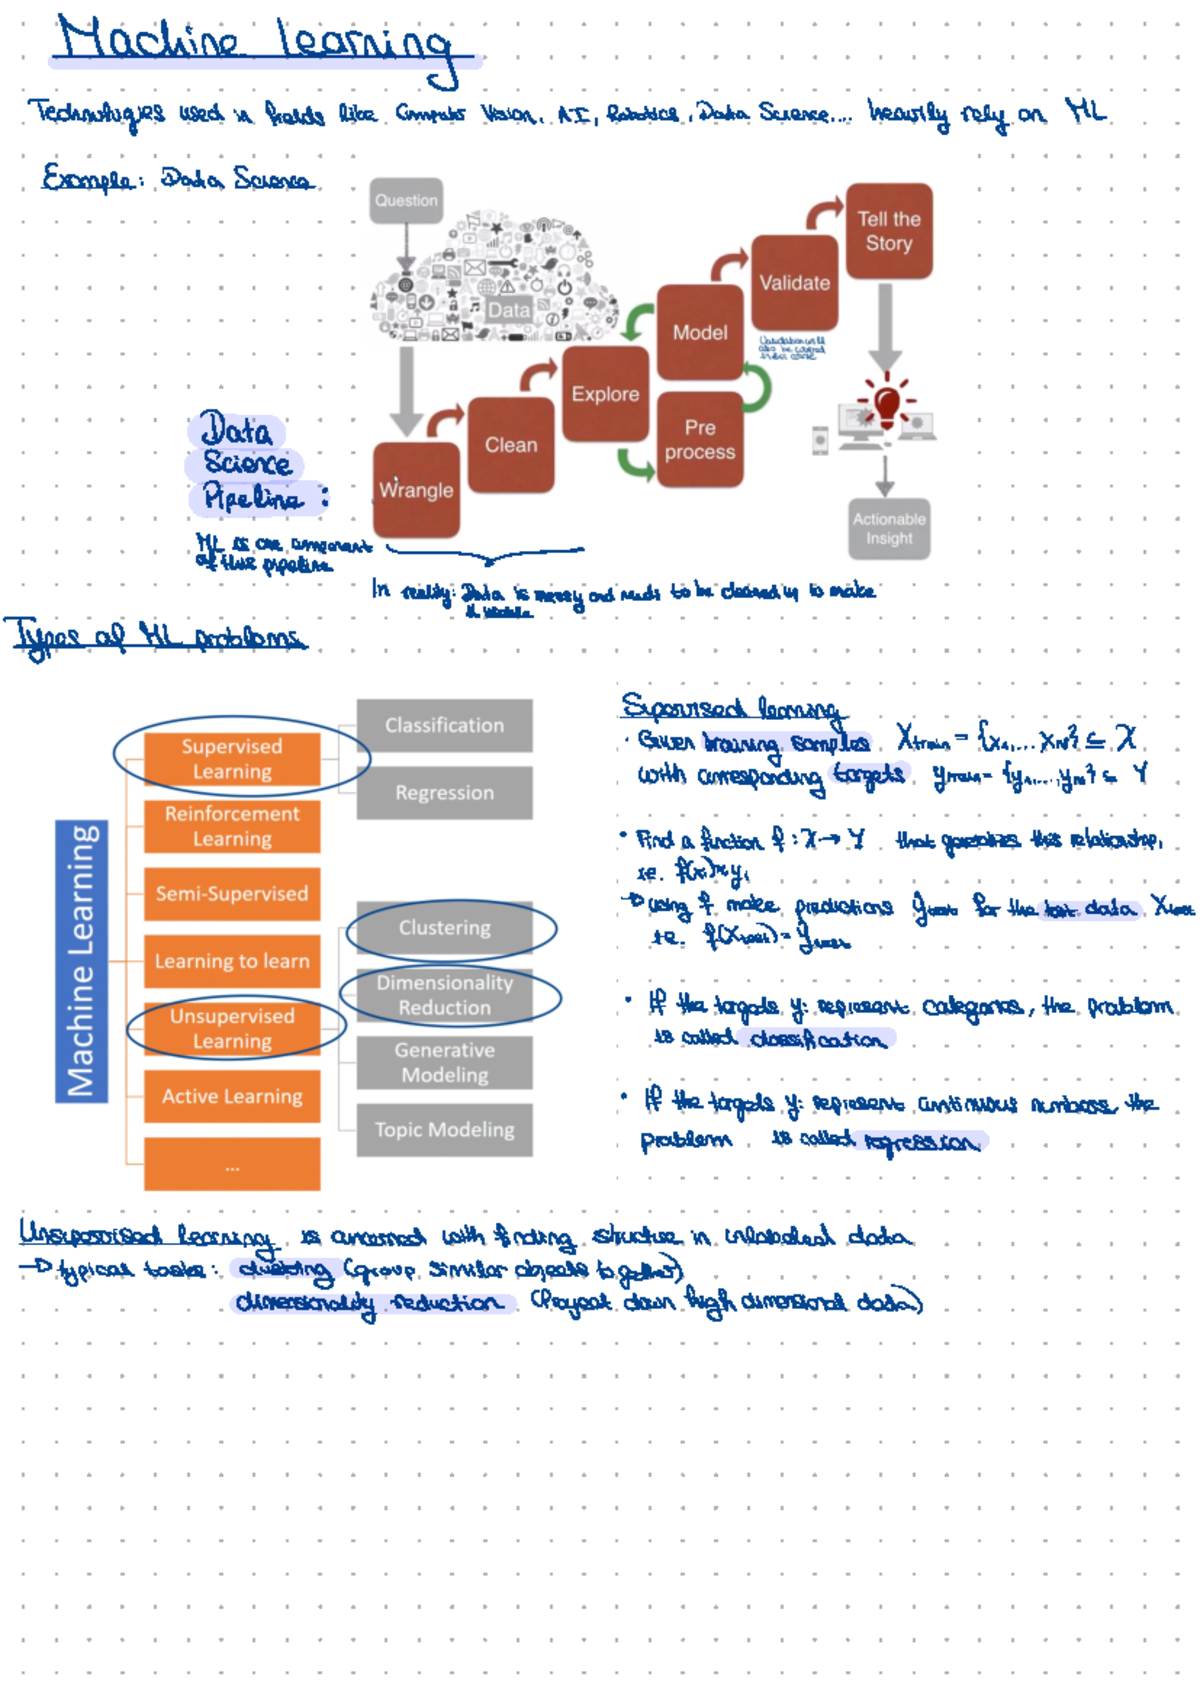 Machine learning
Technologies used in fields like Computer Vision, AI, Robotics, Data Science... heavily rely on ML
Example: Data Science
Question
Data
Wrangle
Clean
Explore
Pre
process
Model
Validate
Validation will
also be covered
Tell the
Story
Actionable
Insight
Data
Science
Pipeline:
ML is one component
of this pipeline
In reality: Data is messy and needs to be cleaned up to make
it usable
Types of ML problems
Machine Learning
Supervised
Learning
Reinforcement
Learning
Semi-Supervised
Learning to learn
Unsupervised
Learning
Active Learning
...
Classification
Regression
Clustering
Dimensionality
Reduction
Generative
Modeling
Topic Modeling
Supervised learning
· Given training samples Xtrain = {x1,... xN} ⊆ X
with corresponding targets ytrain = {y1,...,yN} ⊆ Y
· Find a function f: X → Y that generalizes this relationship,
ie. f(xi) ≈ yi
→ using f make predictions ŷtest for the test data Xtest
ie. f(Xtest) = ŷtest
· If the targets yi represent categories, the problem
is called classification
· If the targets yi represent continuous numbers, the
problem is called regression
Unsupervised learning is concerned with finding structure in unlabeled data
→ typical tasks: clustering (group similar objects together)
dimensionality reduction (Project down high dimensional data)